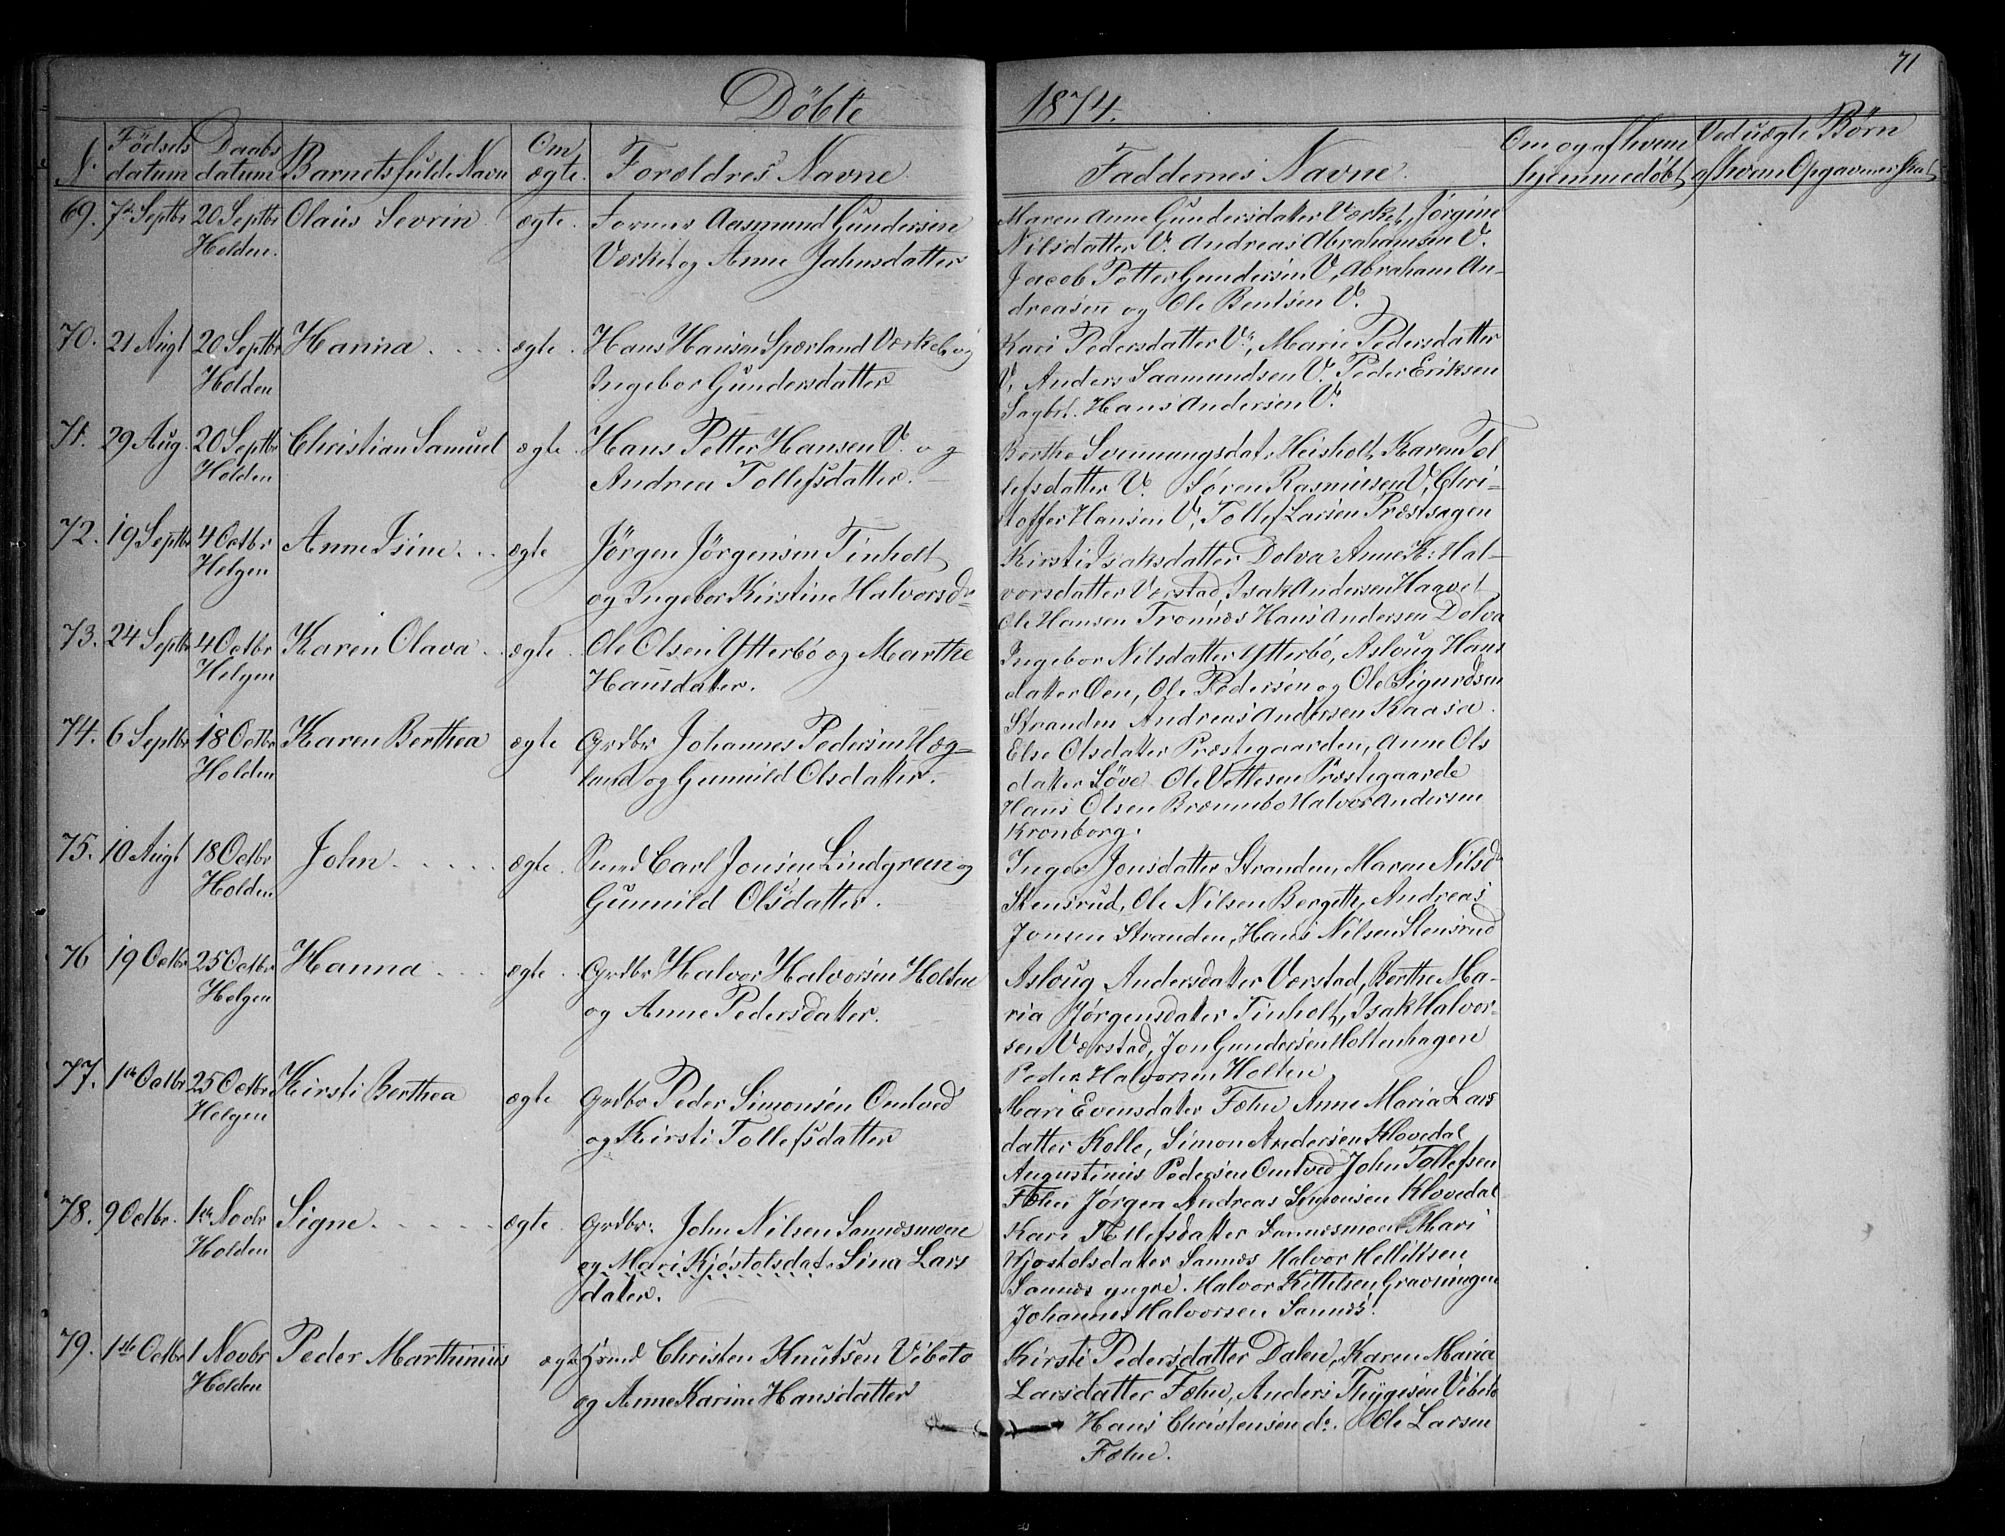 71
Döbte 1874.
N. Födsels datum Daabs datum Barnets fulde Navn Om ægte. Forældres Navne
Faddernes Navne. Om og af hvem hjemmedøbt Ved uægte Børn af hvem Opgaven er skeet
69. 7de Septbr 20 Septbr Holden. Olaus Sevrin ægte. Former Aasmund Gundersen
Værket og Anne Jahnsdatter
Maren Anne Gundersdatter Værket, Jørgine
Nilsdatter V. Andreas Abrahamsen V.
Jacob Petter Gundersen V, Abraham An-
dreasen og Ole Bentsen V.
70. 21 Augt 20 Septbr Holden Hanna ægte. Hans Hansen Sperland Værket og
Ingebor Gundersdatter
Kari Pedersdatter V., Marie Pedersdatter
V, Anders Saamundsen V. Peder Eriksen
Sagbr. Hans Andersen V.
71. 29 Aug. 20 Septb Holden Christian Samuel ægte. Hans Petter Hansen V. og
Andrea Tollefsdatter.
Berthe Svennungsdat. Heisholt, Karen Tol
lefsdatter V. Søren Rasmusen V, Chri-
stoffer Hansen V, Tollef Larsen Præstsagen
72. 19 Septbr 4 Octbr Helgen Anne Isine ægte Jörgen Jörgensen Tinholt
og Ingebor Kirstine Halvorsdr
Kirsti Isaksdatter Dolva Anne K: Hal-
vorsdatter Værstad, Isak Andersen Haavet
Ole Hansen Tronnes Hans Andersen Dolva
73. 24 Septbr 4 Octbr Helgen Karen Olava ægte. Ole Olsen Ytterbö og Marthe
Hansdater.
Ingebor Nilsdatter Ytterbö, Asloug Hans
datter Oen, Ole Pedersen og Ole Sigurdsen
Stranden Andreas Andersen Kaasa.
74. 6 Septbr 18 Octbr Holden Karen Berthea ægte Grdbr Johannes Pedersen Hæg-
land og Gunnild Olsdatter.
Else Olsdater Præstegaarden, Anne Ols
datter Söve Ole Vettesen Præstegaarde
Hans Olsen Brænnebo Halvor Andersen
Kronborg.
75. 10 Augt 18 Octbr Holden John ægte. Smed Carl Jonsen Lindgreen og
Gunnild Olsdatter.
Inger Jonsdatter Stranden, Maren Nilsd
Stensrud, Ole Nilsen Bergette, Andreas
Jonsen Stranden, Hans Nilsen Stensrud
76 19 Octbr 25 Octbr Helgen Hanna ægte. Grdbr Halvor Halvorsen Holden
og Anne Pedersdatter.
Asloug Andersdatter Værstad, Berthe Ma-
ria Jørgensdater Tinholt, Isak Halvor-
sen Værstad, Jon Gundersen Holtenhagen
Peder Halvorsen Holten
77. 1ste Octbr 25 Octbr Helgen Kirsti Berthea ægte Grdbr Peder Simonsen Omtved
og Kirsti Tollefsdatter
Mari Evensdater Fæhn Anne Maria Lars
datter Kolle, Simon Andersen Klovedal
Augustinus Pedersen Omtved John Tollefsen
Fæhn Jørgen Andreas Simonsen Klovedal
78. 9 Octbr. 1ste Novbr Holden Signe ægte Grdbr. John Nilsen Sannesmoen
og Mari Kjøstolsdat. Sina Lars
dater.
Kari Tollefsdatter Sannesmoen Mari
Kjøstolsdater Sannes Halvor Kittilsen
Sannes yngre. Halvor Kittilsen Gravningen
Johannes Halvorsen Sannes.
79. 1ste Octbr 1 Novbr Holden Peder Marthinius ægte Hsmd Christen Knutsen Vibeto
og Anne Karine Hansdatter
Kirsti Pedersdatter Dalen, Karen Maria
Larsdatter Fæhn, Anders Thygesen Vibeto
Hans Christensen do. Ole Larsen
Fæhn.